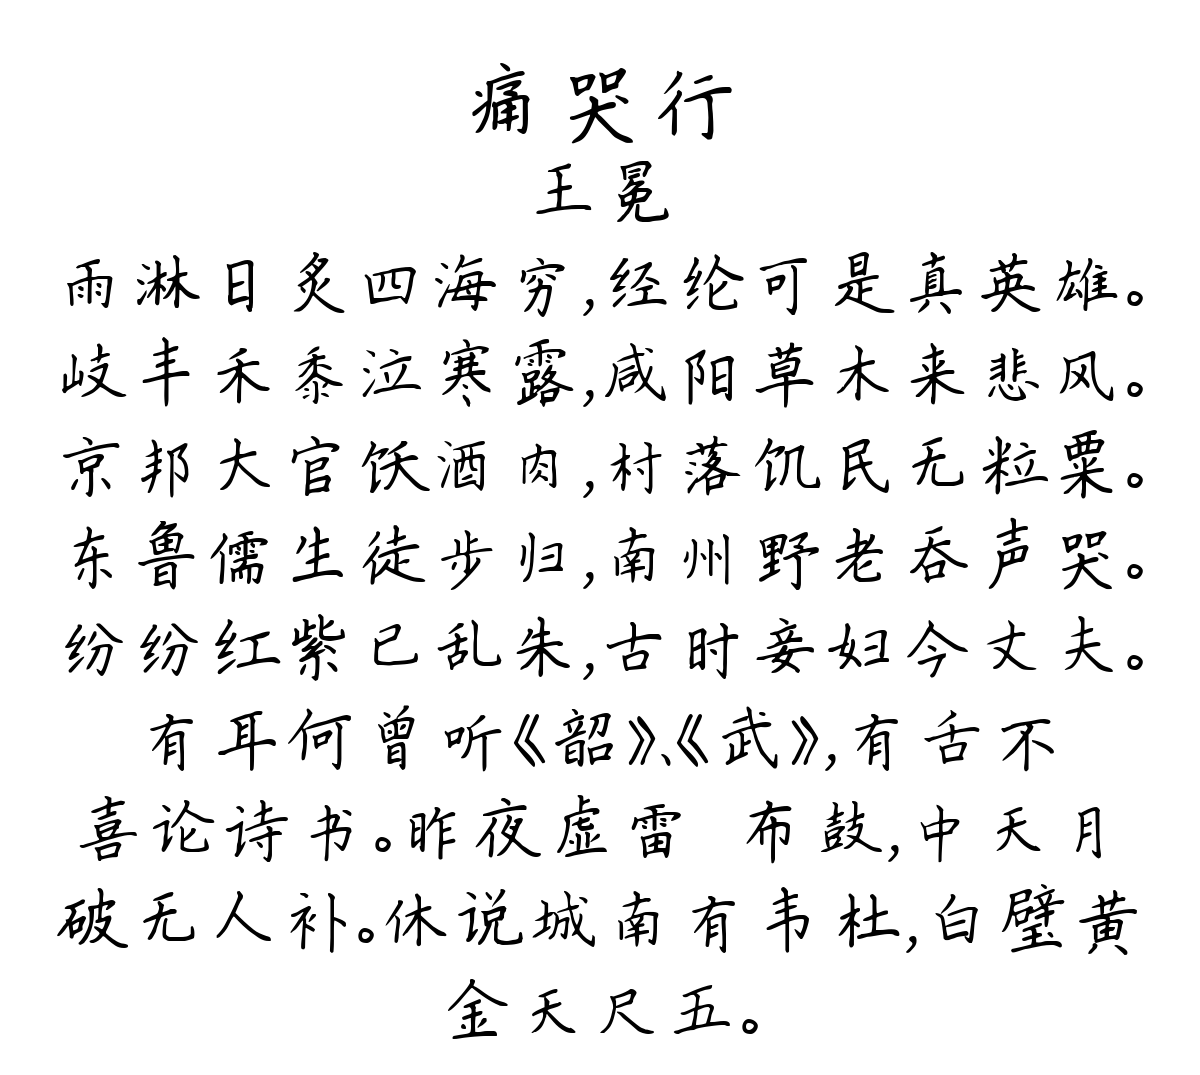 痛哭行
王冕
雨淋日炙四海穷,经纶可是真英雄。
岐丰禾黍泣寒露,咸阳草木来悲风。
京邦大官饫酒肉,村落饥民无粒粟。
东鲁儒生徒步归,南州野老吞声哭。
纷纷红紫已乱朱,古时妾妇今丈夫。
有耳何曾听《韶》、《武》,有舌不
喜论诗书。昨夜虚雷 布鼓,中天月
破无人补。休说城南有韦杜,白璧黄
金天尺五。